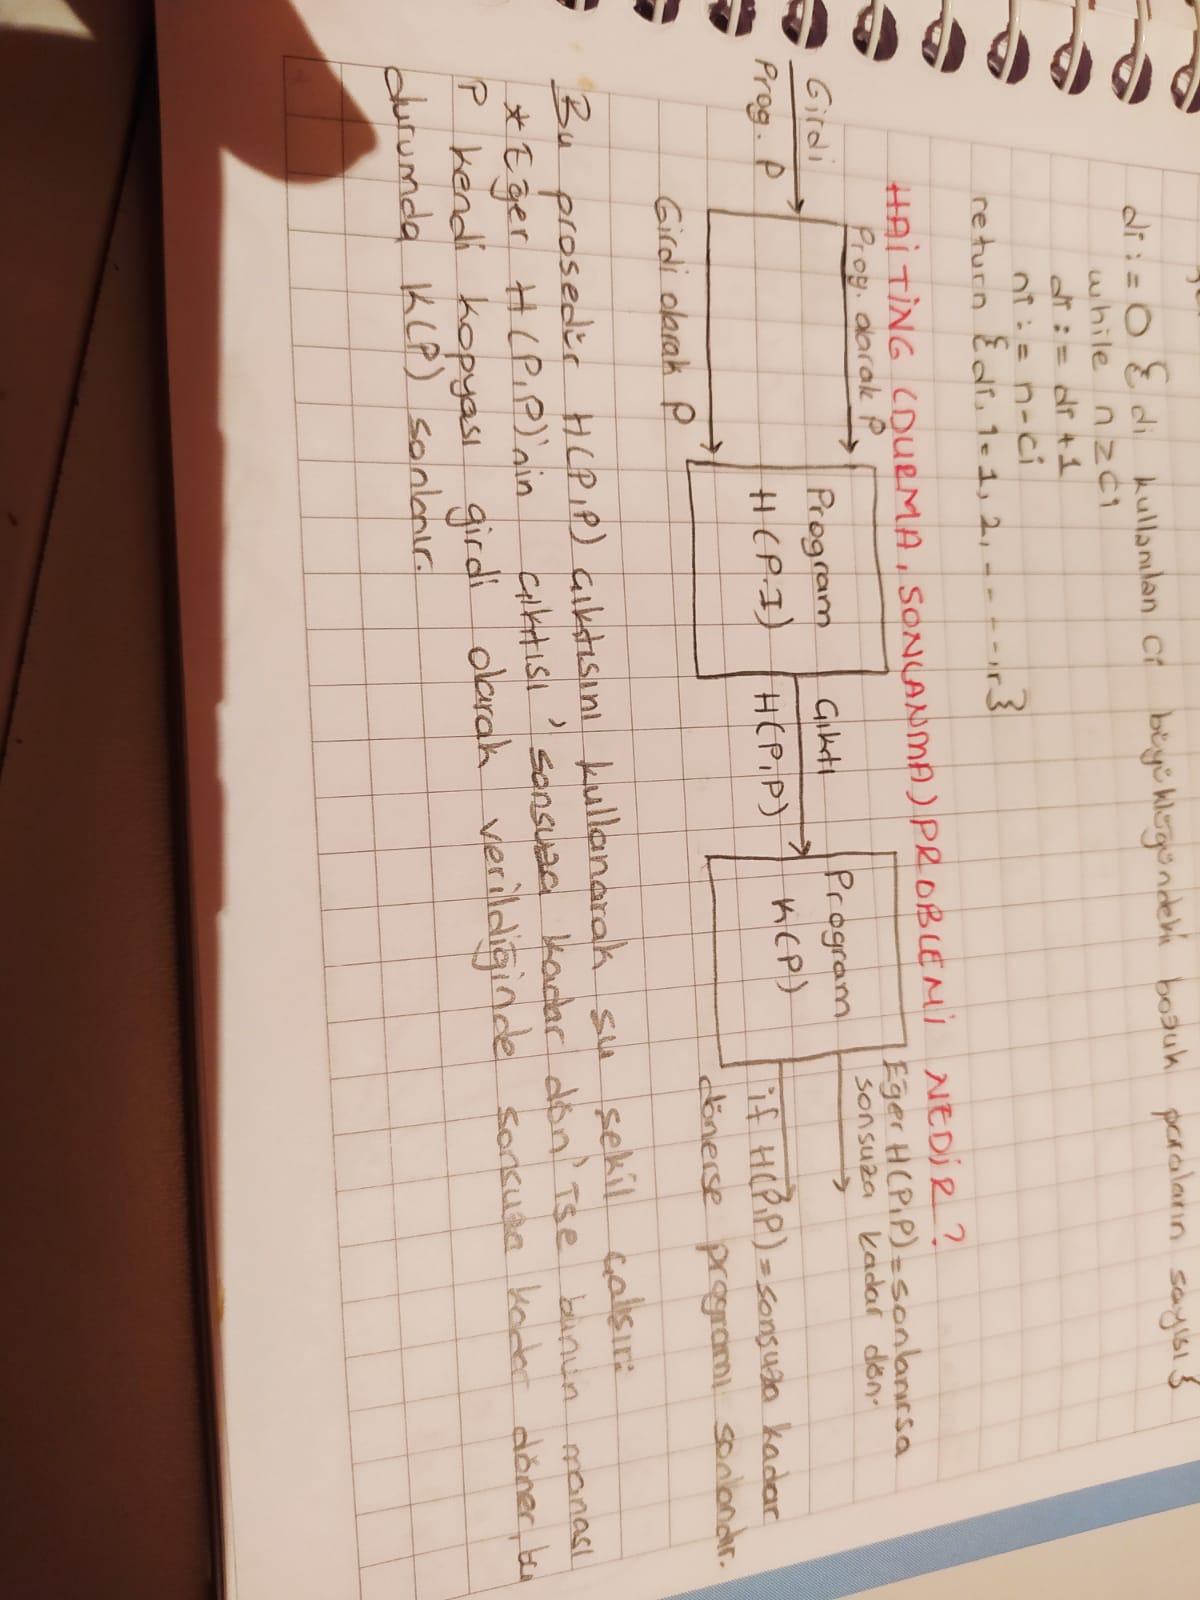 di := 0 { di kullanılan ci büyüklüğündeki bozuk paraların sayısı }
while n ≥ ci
di := di + 1
n := n - ci
return { di, i = 1, 2, - - - -, r }
HALTİNG (DURMA, SONLANMA) PROBLEMİ NEDİR?
Girdi
Prog. P
Prog. olarak P
Girdi olarak P
Program
H(P.I)
Çıktı
H(P,P)
Program
K(P)
Eğer H(P,P)=sonlanırsa
sonsuza kadar dön.
if H(P,P)=sonsuza kadar
dönerse programı sonlandır.
Bu prosedür H(P,P) çıktısını kullanarak şu şekil çalışır:
* Eğer H(P,P)'nin çıktısı 'sonsuza kadar dön' ise bunun manası
P kendi kopyası girdi olarak verildiğinde sonsuza kadar döner, bu
durumda K(P) sonlanır.